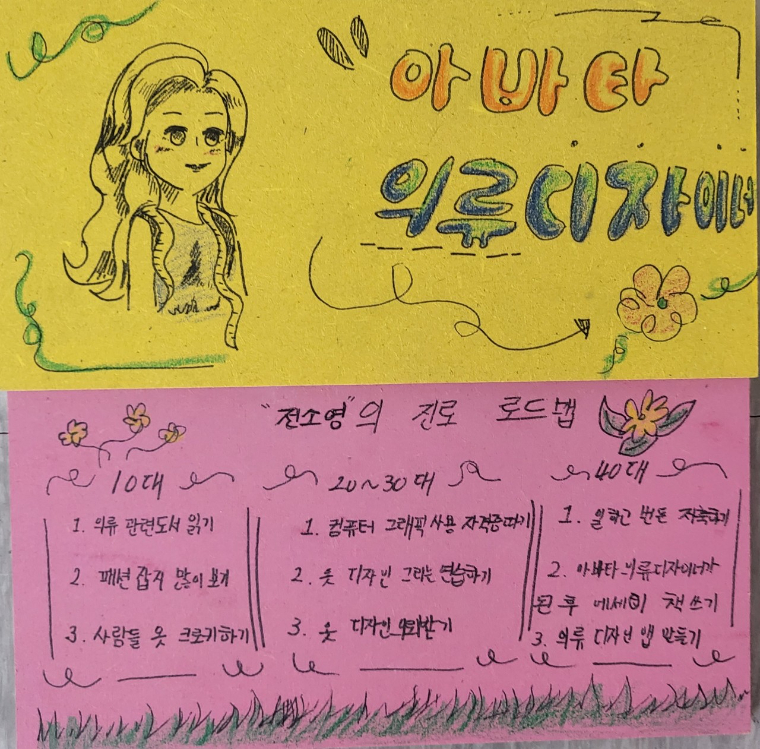 아바타
의류디자이너
"전소영"의 진로 로드맵
10대
1. 의류 관련도서 읽기
2. 패션 잡지 많이 보기
3. 사람들 옷 크로키하기
20~30대
1. 컴퓨터 그래픽 사용 자격증따기
2. 옷 디자인 그리는 연습하기
3. 옷 디자인 의뢰받기
40대
1. 일하고 번돈 저축하기
2. 아바타 의류디자이너가
된 후 에세이 책 쓰기
3. 의류 디자인 앱 만들기